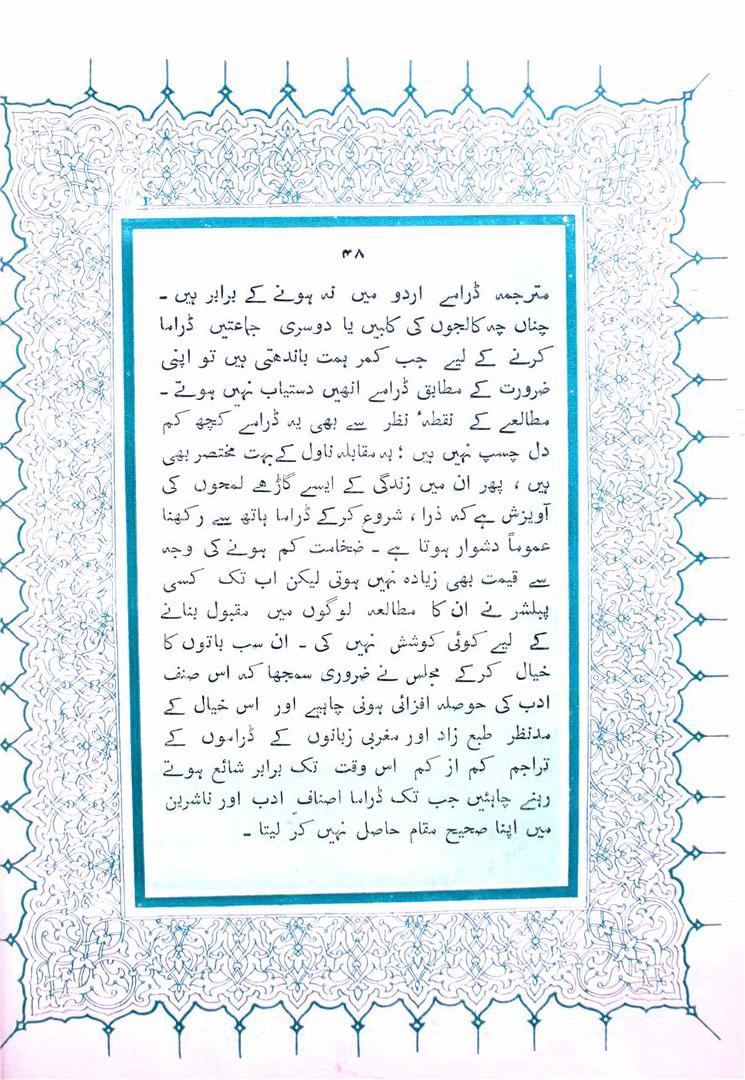 ۴۸
مترجمہ ڈرامے اردو میں نہ ہونے کے برابر ہیں ۔
چناں چہ کالجوں کی کلبیں یا دوسری جماعتیں ڈراما
کرنے کے لیے جب کمر ہمت باندھتی ہیں تو اپنی
ضرورت کے مطابق ڈرامے انھیں دستیاب نہیں ہوتے ۔
مطالعے کے نقطہٴ نظر سے بھی یہ ڈرامے کچھ کم
دل چسپ نہیں ہیں ؛ بہ مقابلہ ناول کے بہت مختصر بھی
ہیں ، پھر ان میں زندگی کے ایسے گاڑھے لمحوں کی
آویزش ہے کہ ذرا ، شروع کرکے ڈراما ہاتھ سے رکھنا
عموماً دشوار ہوتا ہے ۔ ضخامت کم ہونے کی وجہ
سے قیمت بھی زیادہ نہیں ہوتی لیکن اب تک کسی
پبلشر نے ان کا مطالعہ لوگوں میں مقبول بنانے
کے لیے کوئی کوشش نہیں کی ۔ ان سب باتوں کا
خیال کرکے مجلس نے ضروری سمجھا کہ اس صنف
ادب کی حوصلہ افزائی ہونی چاہیے اور اس خیال کے
مدنظر طبع زاد اور مغربی زبانوں کے ڈراموں کے
تراجم کم از کم اس وقت تک برابر شائع ہوتے
رہنے چاہئیں جب تک ڈراما اصنافِ ادب اور ناشرین
میں اپنا صحیح مقام حاصل نہیں کر لیتا ۔